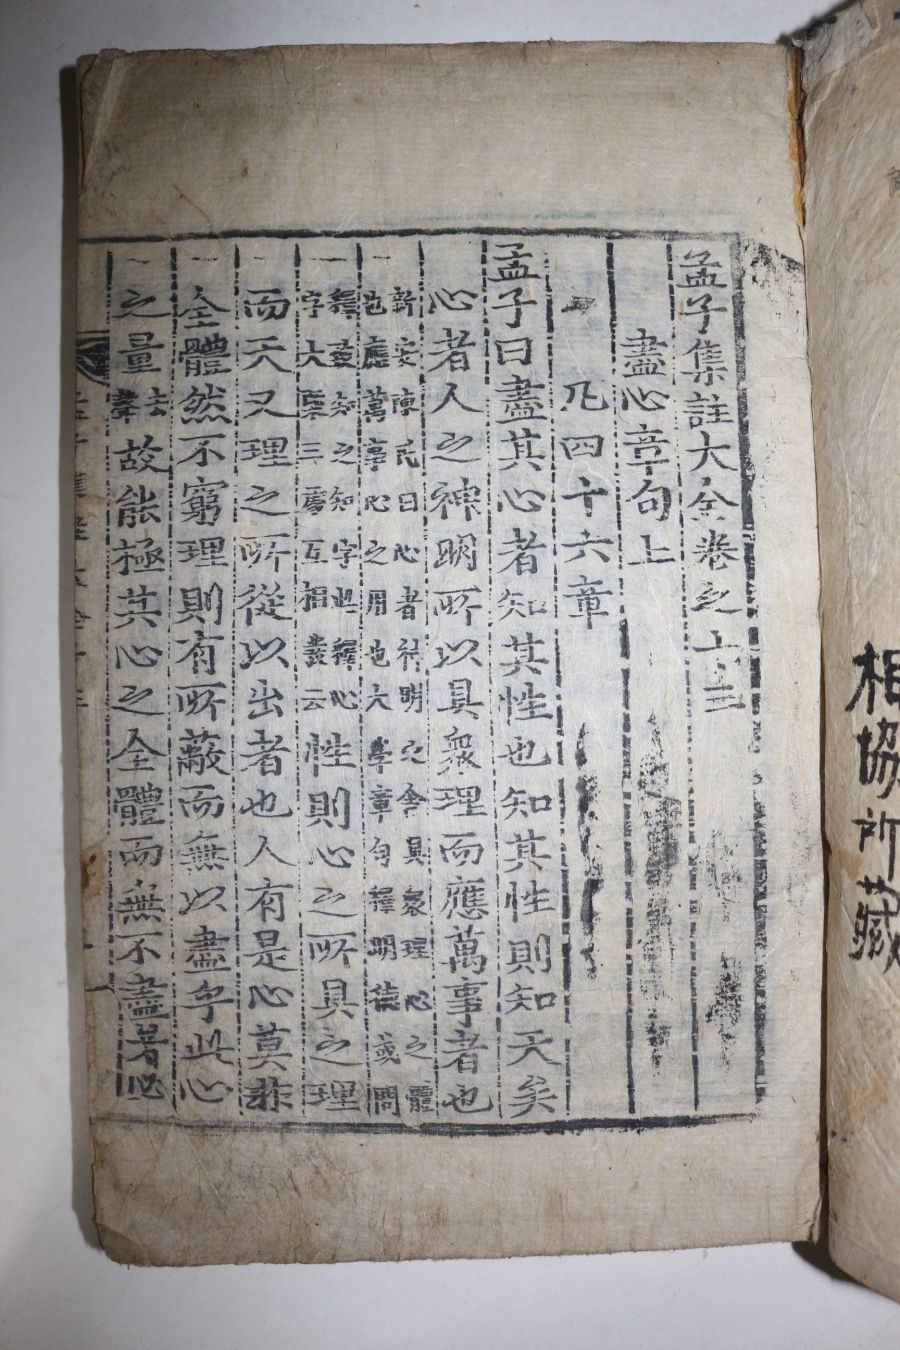 相協所藏
孟子集註大全卷之十三
盡心章句上
凡四十六章
孟子曰盡其心者知其性也知其性則知天矣
心者人之神明所以具衆理而應萬事者也
新安陳氏曰心者神明之舍具衆理心之體
也應萬事心之用也大學章句釋明德或問
釋致知之知字與釋心
字大槩三處互相發云
性則心之所具之理
而天又理之所從以出者也人有是心莫非
全體然不窮理則有所蔽而無以盡乎此心
之量去聲故能極其心之全體而無不盡者必